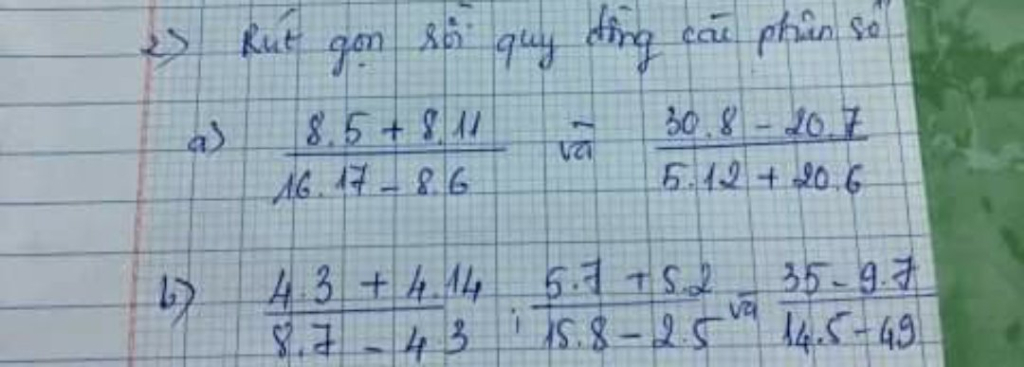 2) Rút gọn rồi quy đồng các phân số
a) 8.5 + 8.11 / 16.17 - 8.6 và 30.8 - 20.7 / 5.12 + 20.6
b) 4.3 + 4.14 / 8.7 - 4.3 ; 5.7 + 5.2 / 15.8 - 2.5 và 35 - 9.7 / 14.5 - 49